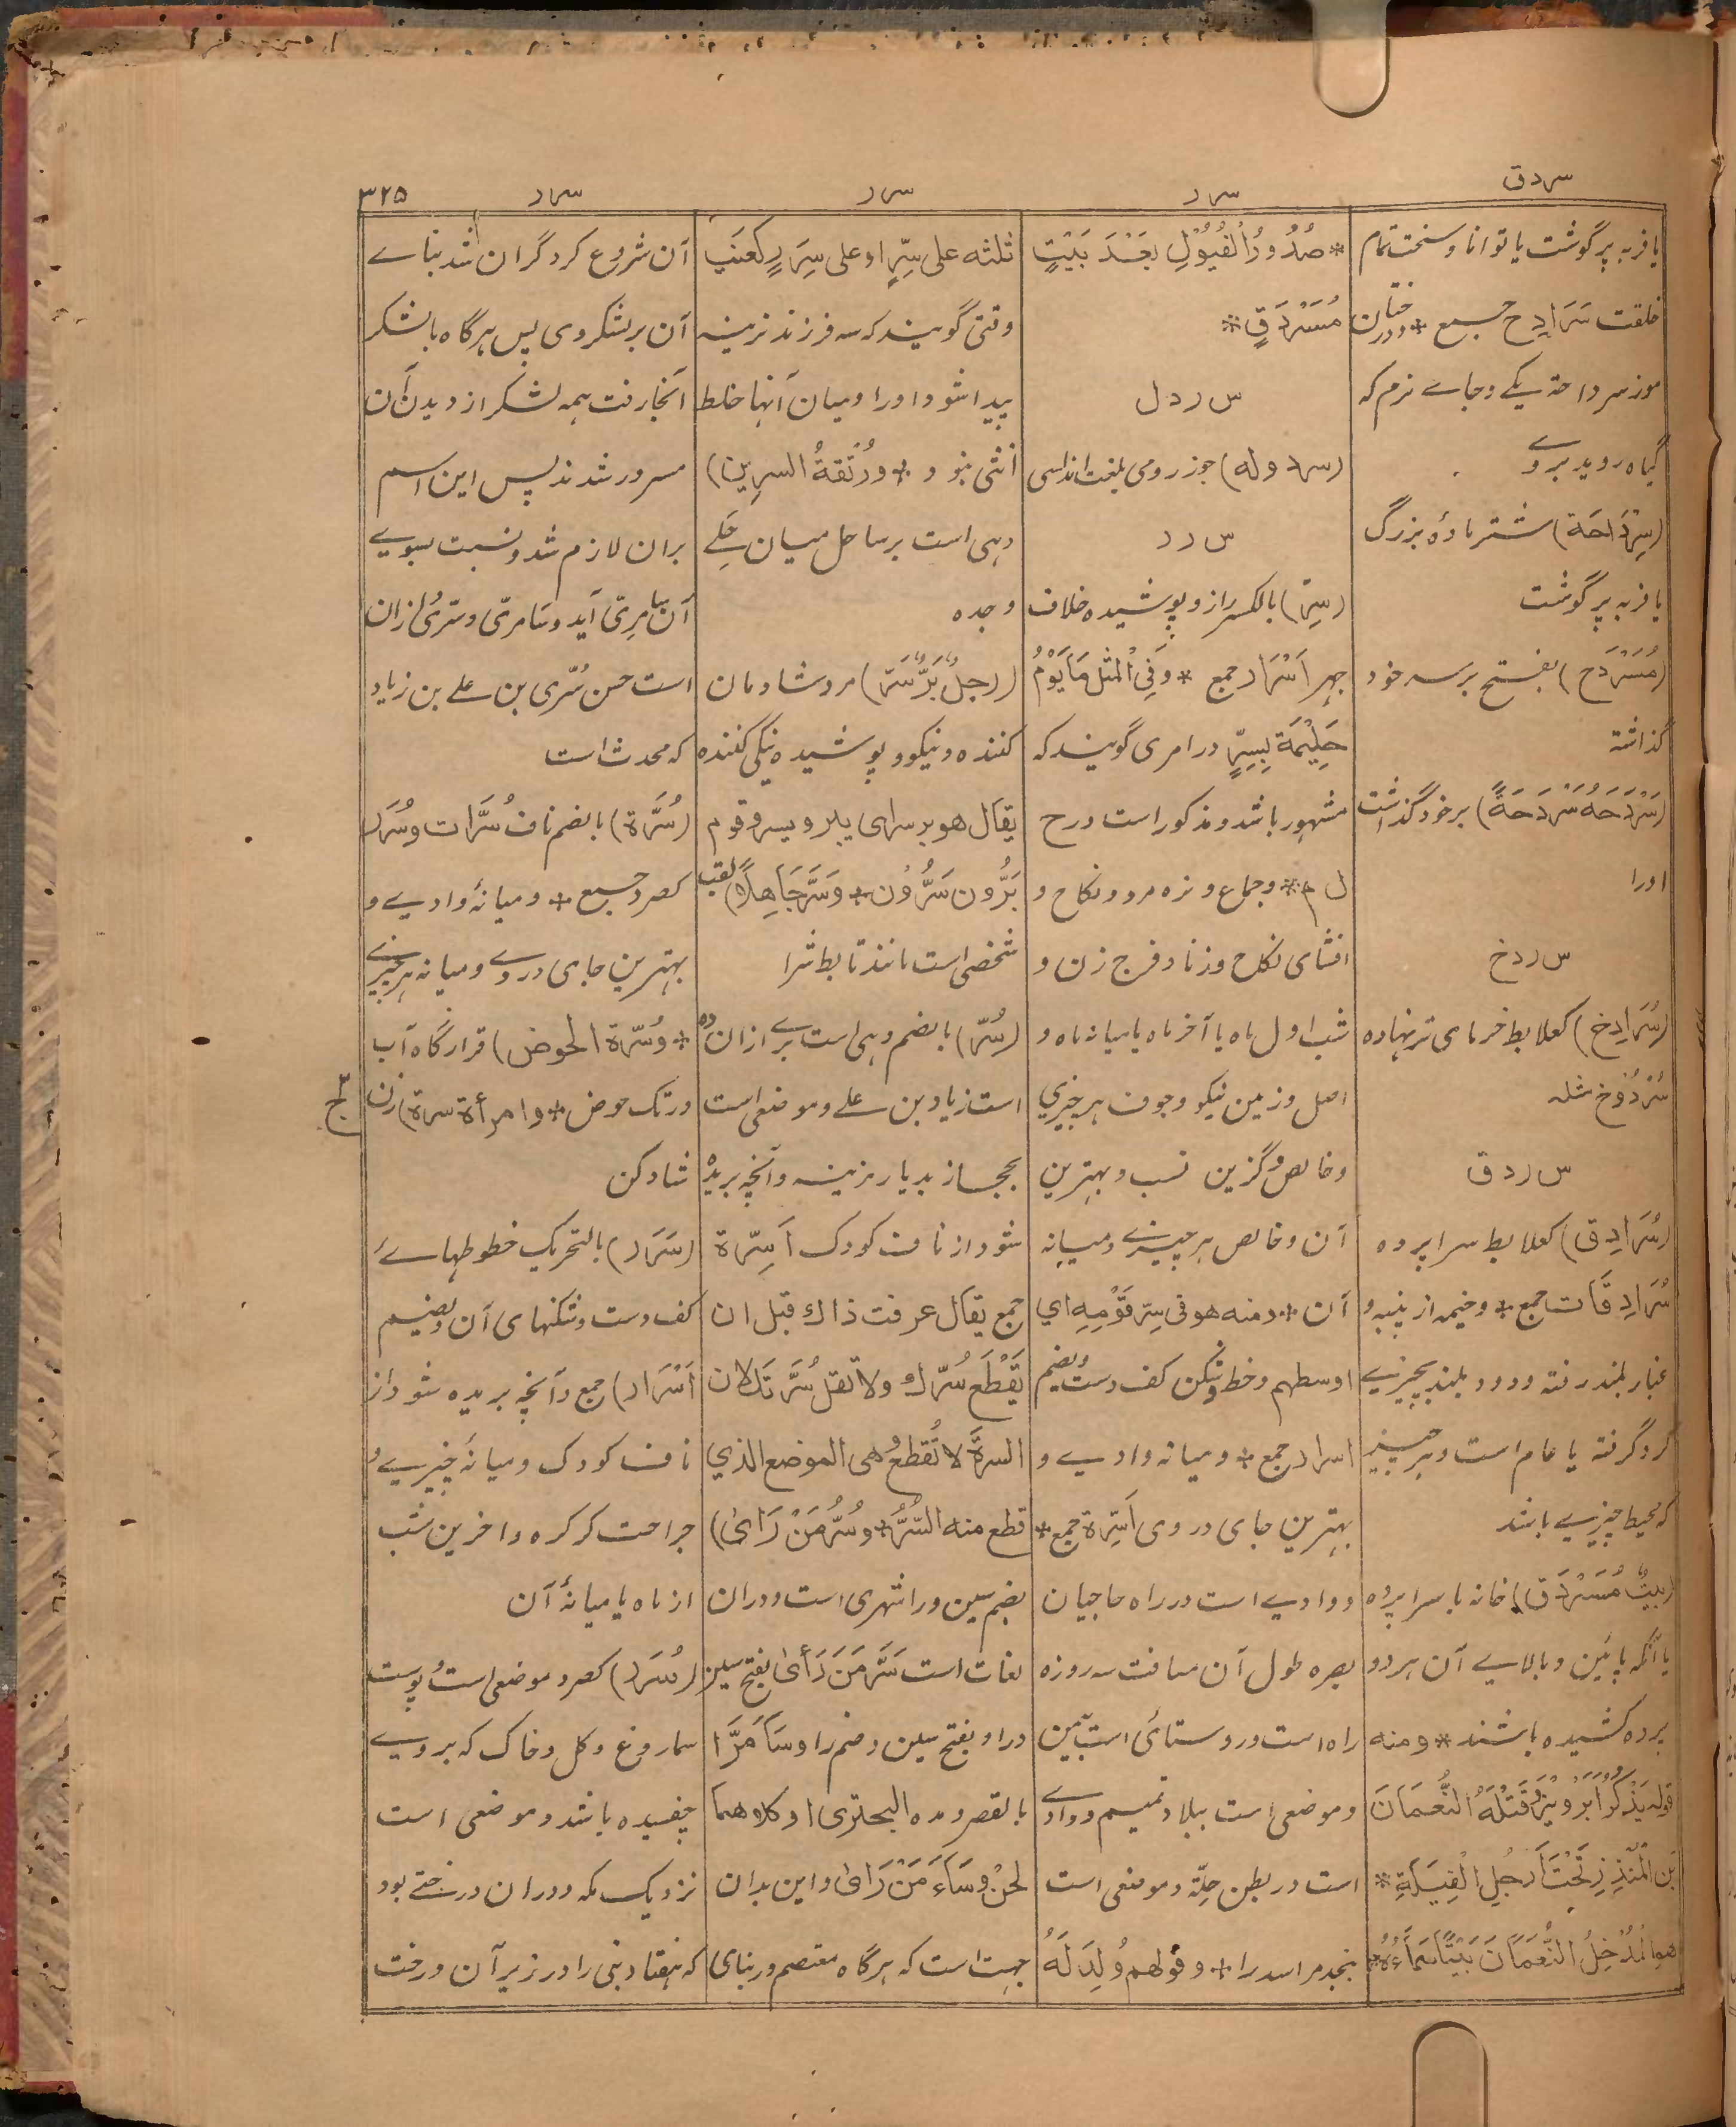 س ر د ق
س ر ر
س ر ر
س ر ر
٣٢٥
یا فربه پر گوشت یا توانا و سخت تمام
خلقت سَرَادِح جمع * و درختان
موز سرداحة یکے و جاے نرم که
گیاه روید بروے
(سِرْدَاحَة) شتر ماده بزرگ
یا فربه پر گوشت
(مُسَرْدَح) بفتح بر سر خود
گذاشته
(سَرْدَحَهُ سَرْدَحَةً) بر خود گذاشت
اورا
س ر د خ
(سُرَادِخ) کعلابط خرمای تر نهاده
سُرْدُوخ مثله
س ر د ق
(سُرَادِق) کعلابط سراپرده
سُرَادِقَات جمع * و خیمه از پنبه و
غبار بلند رفته و دود بلند بچیزے
گرد گرفته یا عام است و هر چیز
که محیط چیزے باشد
(بیتٌ مُسَرْدَق) خانه با سراپرده
یا آنکه پائین و بالاے آن هر دو
پرده کشیده باشند * و منه
قوله یَذْکُرُ اَبَرْوِیْزَ وَقَتْلَهُ النُّعْمَانَ
بْنَ الْمُنْذِرِ تَحْتَ اَرْجُلِ الْفِیَلَةِ *
هوا لْمُدْخِلُ النُّعْمَانَ بَیْتًا سَمَاءُهُ *
* صُدُورُ الْفُیُوْلِ بَعْدَ بَیْتٍ
مُسَرْدَقٍ *
س ر د ل
(سردوله) جوز رومی بلغت اندلسی
س ر ر
(سِرّ) بالکسر راز و پوشیده خلاف
جهر اَسْرَار جمع * وَفِی الْمَثَل مَا یَوْمُ
حَلِیْمَة بِسِرٍّ در امری گویند که
مشهور باشد و مذکور است در ح
ل م * و جماع و نره مرد و نکاح و
افشای نکاح و زنا و فرج زن و
شب اول ماه یا آخر ماه یا میانه ماه و
اصل و زمین نیکو و جوف هر چیزی
و خالص و گزین نسب و بهترین
آن و خالص هر چیزے و میانه
آن * و منه هو فی سِرّ قَوْمِهِ ای
اوسطهم و خط و شکن کف دست و یضم
اسرار جمع * و میانه وادے و
بهترین جای در وی اَسِرَّة جمع *
و وادے است در راه حاجیان
بصره طول آن مسافت سه روزه
راه است و روستائی است بین
و موضعی است ببلاد تمیم و وادے
است در بطن حِلَّة و موضعی است
بنجد مر اسد را * و قولهم وُلِدَ لَهُ
ثلثه علی سِرٍّ او علی سِرَرٍ کعِنَبٍ
وقتی گویند که سه فرزند نرینه
پیدا شود اورا و میان آنها خلط
اُنثی نبود * (ودُتْقَةُ السِرِین)
دهی است بر ساحل میان حَلِے
و جده
(رجلٌ بَرٌّ سَرٌّ) مرد شادمان
کننده و نیکو و پوشیده نیکی کننده
یقال هو بر سرای یبر ویسر و قوم
بَرُّون سَرُّوْن * وَ سَرَّ جَاهِلًا) لقب
شخصی است مانند تابط شرا
(سُرّ) بالضم دهی است بِرے از ان ده
است زیاد بن علے و موضعی است
بحجاز بدیار مزینه و آنچه بریده
شود از ناف کودک اَسِرَّة
جمع یقال عرفت ذالك قبل ان
یَقْطَع سُرّك ولا تقل سُرَّتَك لان
السرةَ لا تُقطعُ هی الموضع الذي
قطع منه السُّرُّ * وسُرَّ مَنْ رَاَیٰ)
بضم سین و را شهری است و دران
لغات است سَرَّ مَنْ رَأَیٰ بفتح سین
و را و بفتح سین و ضم را و سَاَمَرَّا
بالقصر و مده البحتری او کلاهما
لحنٌ و سَاَءَ مَنْ رَاَیٰ و این بدان
جهت است که هرگاه معتصم در بنای
آن شروع کرد گران شد بناے
آن بر لشکر وی پس هرگاه با لشکر
آنجا رفت همه لشکر از دیدن آن
مسرور شدند پس این اسم
بران لازم شد و نسبت بسوے
آن بسامِرِیّ آید و سَامرِیّ و سُرّیّ ازان
است حسن سُرّی بن علے بن زیاد
که محدث است
(سُرَّة) بالضم ناف سُرَّات و سُرَر
کصرد جمع * و میانهٔ وادیے و
بهترین جای در وے و میانه هر چیزے
* وسُرّة الحوض) قرارگاه آب
در تک حوض * (وامرأة سرة) زن
شاد کن
(سَرَر) بالتحریک خطوطهاے
کف دست و شکنهای آن و یضم
اَسْرَار) جمع و آنچه بریده شود از
ناف کودک و میانهٔ چیزے و
جراحت کرکره و آخرین شب
از ماه یا میانهٔ آن
(سُرَر) کصرد موضعی است و پوست
سماروغ و کل و خاک که بروے
چفسیده باشد و موضعی است
نزدیک مکه و دران درختے بود
که هفتاد نبی را در زیر آن درخت